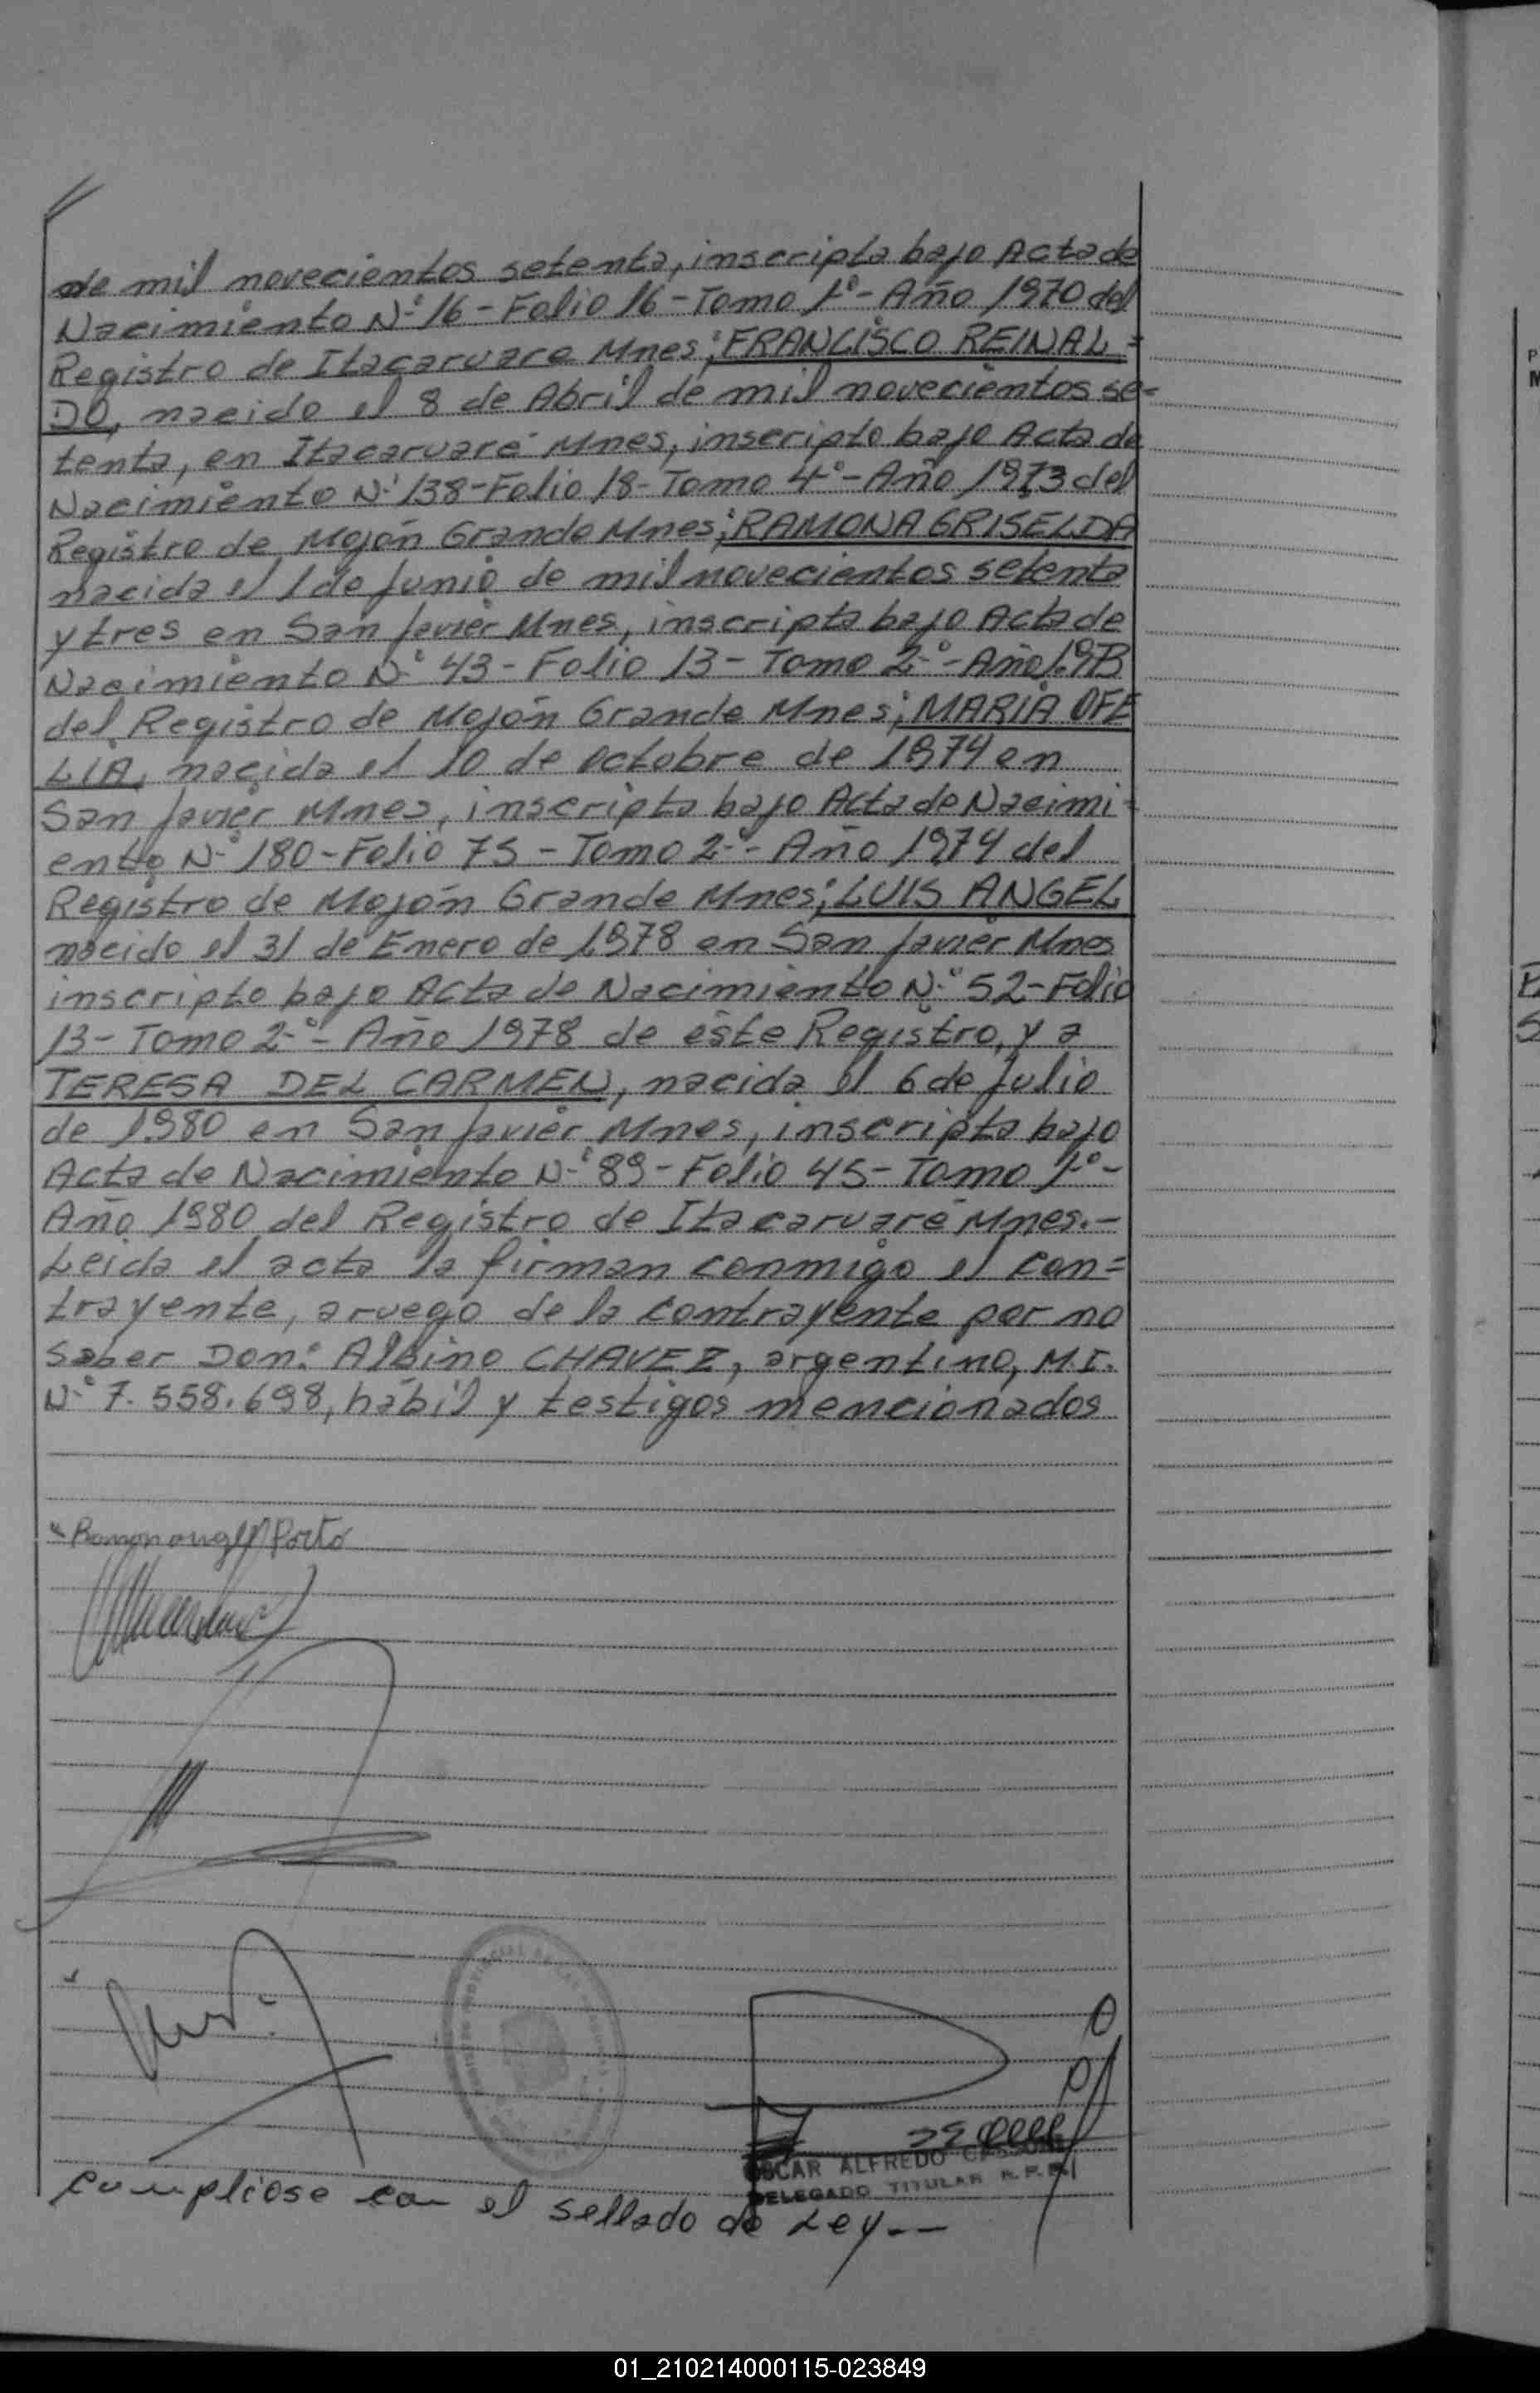 de mil novecientos setenta, inscripta bajo Acta de
Nacimiento N° 16 - Folio 16 - Tomo 1° - Año 1970 del
Registro de Itacaruare Mnes; FRANCISCO REINAL=
DO, nacido el 8 de Abril de mil novecientos se-
tenta, en Itacaruaré Mnes, inscripto bajo Acta de
Nacimiento N° 138 - Folio 18 - Tomo 4° - Año 1973 del
Registro de Mojón Grande Mnes; RAMONA GRISELDA
nacida el 1 de Junio de mil novecientos setenta
y tres en San Javier Mnes, inscripta bajo Acta de
Nacimiento N° 43 - Folio 13 - Tomo 2° - Año 1973
del Registro de Mojón Grande Mnes; MARIA OFE
LIA, nacida el 10 de Octobre de 1974 en
San Javier Mnes, inscripta bajo Acta de Nacimi-
ento N° 180 - Folio 75 - Tomo 2° - Año 1974 del
Registro de Mojón Grande Mnes; LUIS ANGEL
nacido el 31 de Enero de 1978 en San Javier Mnes
inscripto bajo Acta de Nacimiento N° 52 - Folio
13 - Tomo 2° - Año 1978 de éste Registro, y a
TERESA DEL CARMEN, nacida el 6 de Julio
de 1980 en San Javier Mnes, inscripta bajo
Acta de Nacimiento N° 89 - Folio 45 - Tomo 1° -
Año 1980 del Registro de Itacaruaré Mnes.-
Leida el acta la firman conmigo el con=
trayente, a ruego de la contrayente por no
saber Don: Albino CHAVEZ, argentino, M.I.
N° 7.558.698, hábil y testigos mencionados
Ramon angel Porto
OSCAR ALFREDO
DELEGADO TITULAR R.P.P.
Cumpliose con el sellado de Ley.--
01_210214000115-023849